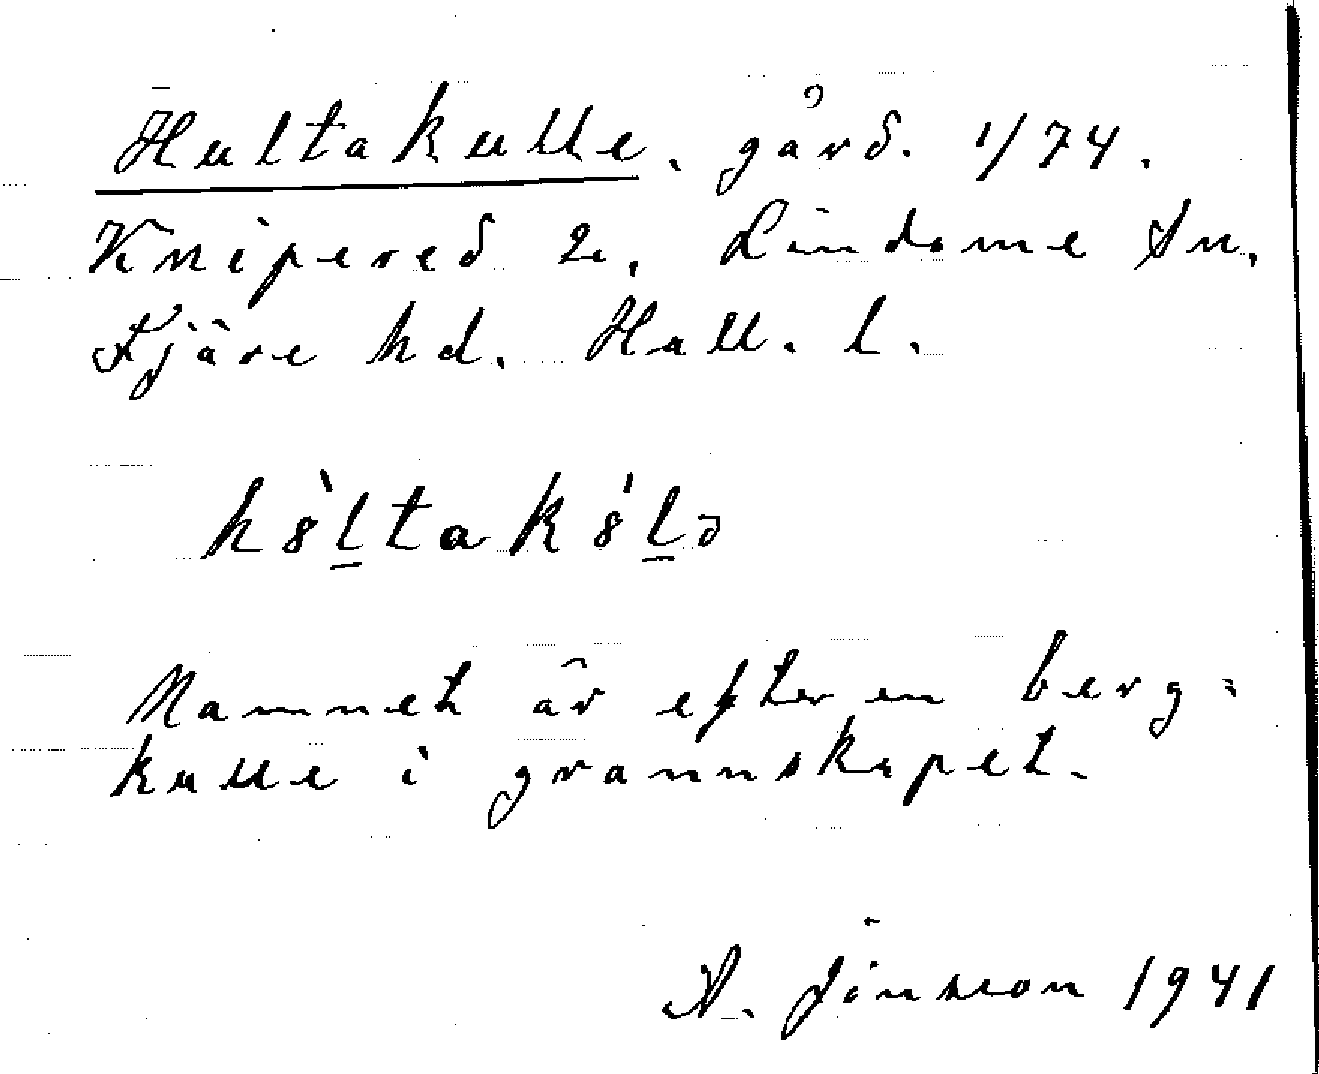 Hultakulle. gård. 1/74.
Knipered 2. Lindome Sn.
Fjäre hd. Hall. l.
h 8̀l̲tak8́l̲ə
Namnet är efter en berg=
kulle i grannskapet.
A. Jönsson 1941